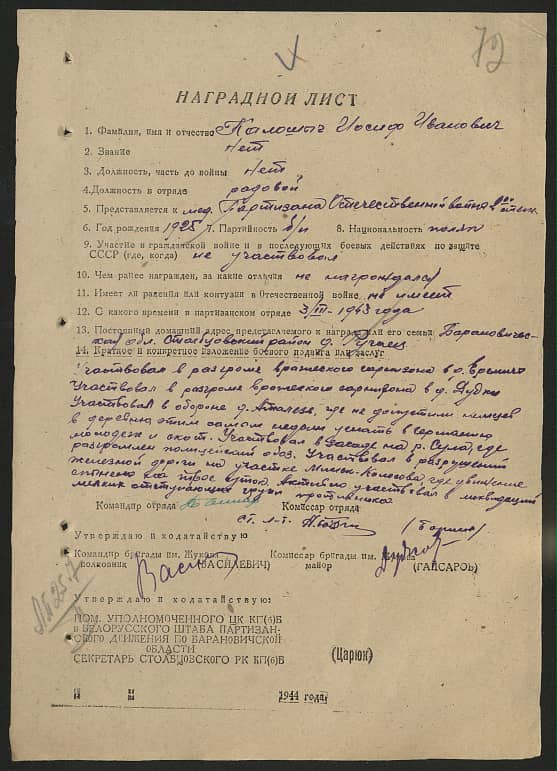 72
НАГРАДНОЙ ЛИСТ
1. Фамилия, имя и отчество Калошыч Иосиф Иванович
2. Звание нет
3. Должность, часть до войны нет
4. Должность в отряде радовой
5. Представляется к мед. Партизана Отечественной войны
6. Год рождения 1925 7. Партийность б/п 8. Национальность поляк
9. Участие в гражданской войне и в последующих боевых действиях по защите
СССР (где, когда) не участвовал
10. Чем ранее награжден, за какие отличия не награждался
11. Имеет ли ранения или контузии в Отечественной войне не имеет
12. С какого времени в партизанском отряде 3/III-1943 года
13. Постоянный домашний адрес представляемого к награде или его семьи Барановичес-
кая обл. Столбцовский район д.
14. Краткое и конкретное изложение боевого подвига или заслуг
Участвовал в разгроме вражеского гарнизона в д. Еремичи
Участвовал в разгроме вражеского гарнизона в д. Дудки
Участвовал в обороне д. где не допустили немцев
в деревню этим самым не дали угнать в Германию
молодеж и скот. Участвовал в засаде на р. Сула, где
разгромлен полицейский обоз. Участвовал в разрушений
железной дороги на участке Минск-Колосова, где движение
двое суток. Активно участвовал в ликвидаций
мелких отступающих групп противника
Командир отряда Комиссар отряда
ст. л-т.
Утверждаю и ходатайствую
Командир бригады им. Жукова Комиссар бригады им. Жукова
полковник (ВАСИЛЕВИЧ) майор (ГАЙСАРОВ)
Утверждаю и ходатайствую:
ПОМ. УПОЛНОМОЧЕННОГО ЦК КП(б)Б
и БЕЛОРУССКОГО ШТАБА ПАРТИЗАН-
СКОГО ДВИЖЕНИЯ ПО БАРАНОВИЧСКОЙ
ОБЛАСТИ
СЕКРЕТАРЬ СТОЛБЦОВСКОГО РК КП(б)Б (Царюк)
1944 года